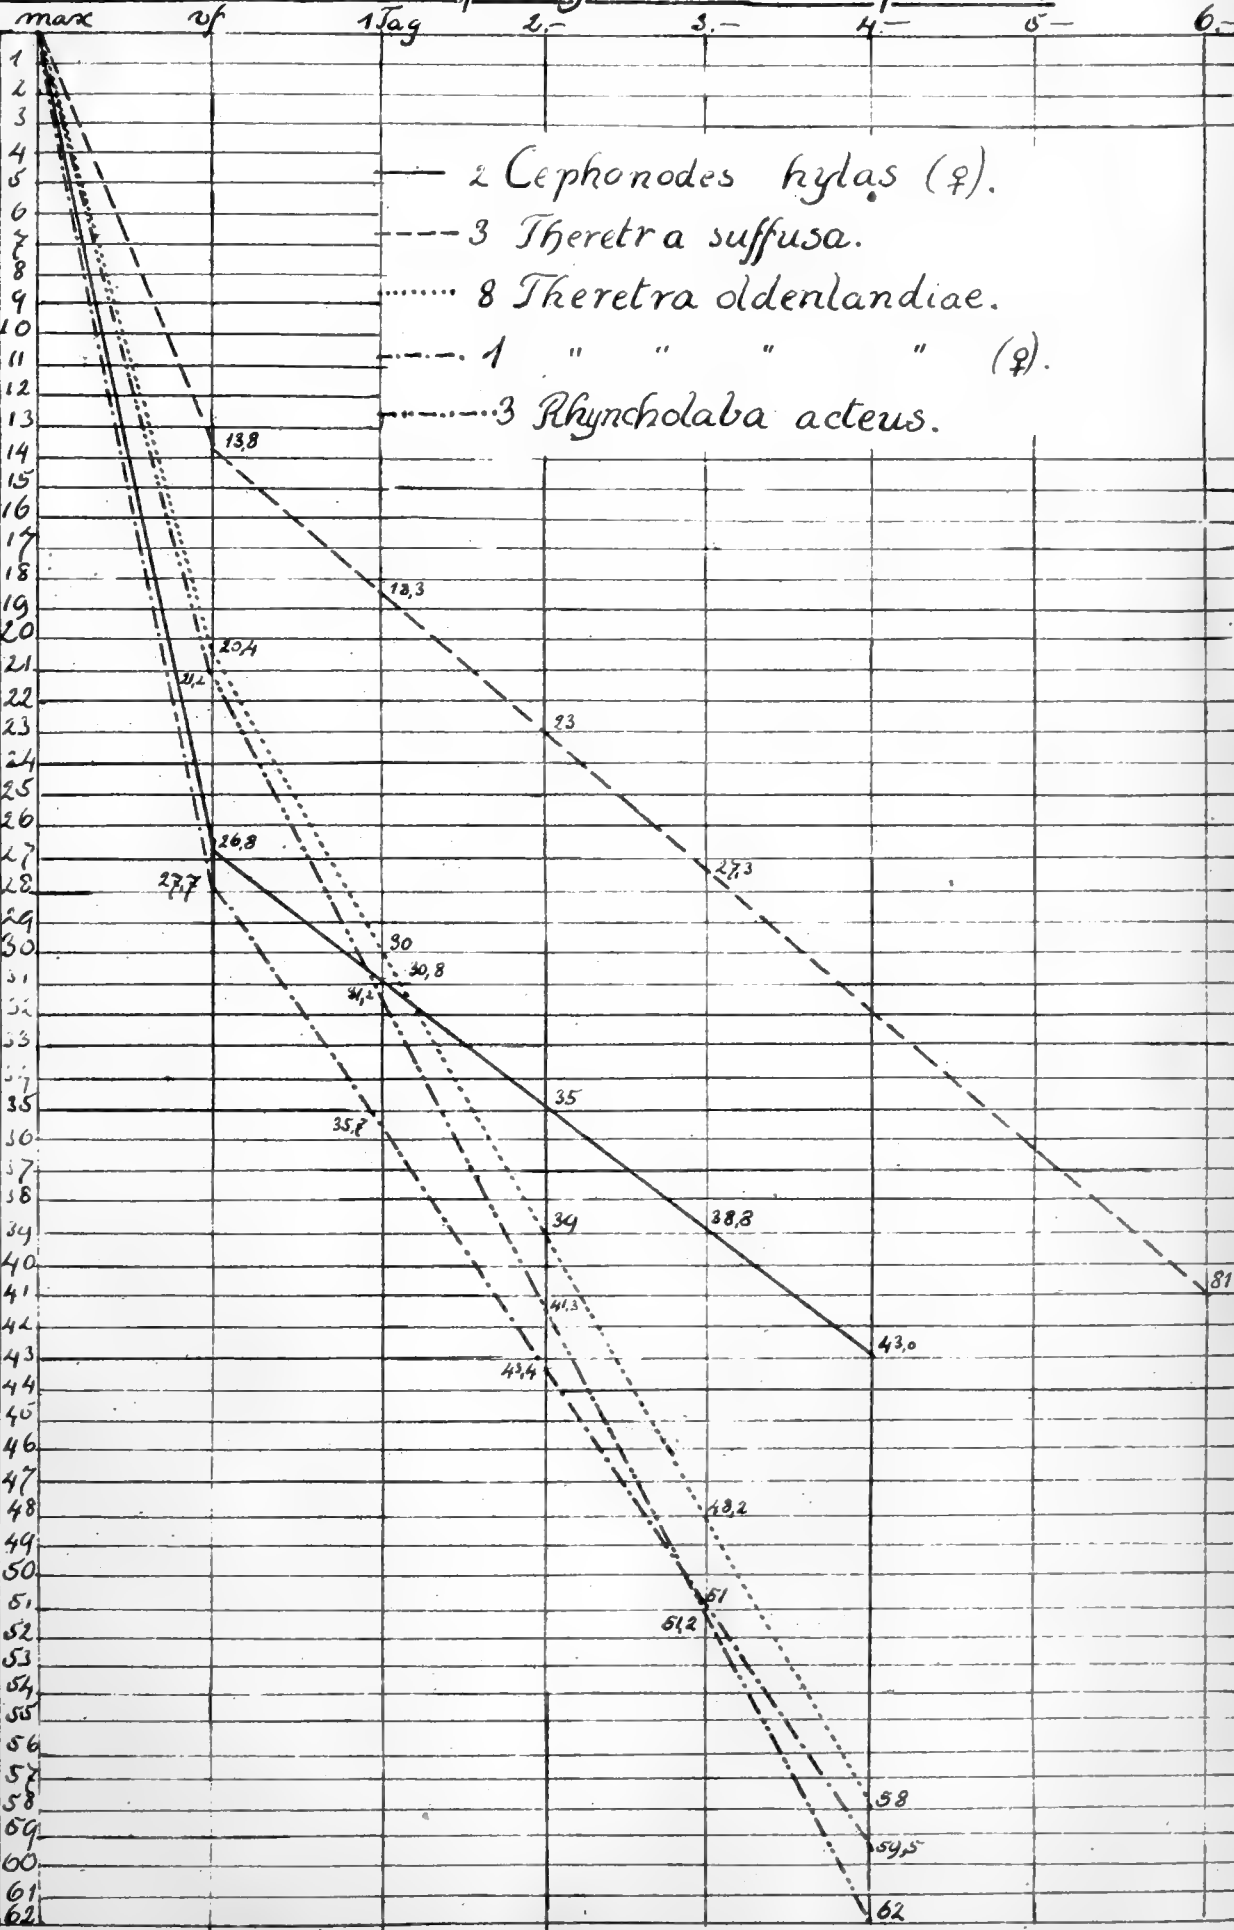 max vf 1 Tag 2.- 3.- 4.- 5.- 6.-
1
2
3
4
5
6
7
8
9
10
11
12
13
14
15
16
17
18
19
20
21
22
23
24
25
26
27
28
29
30
35
36
37
38
39
40
41
42
43
44
45
46
47
48
49
50
51
52
53
54
55
56
57
58
59
60
61
62
2 Cephonodes hylas (♀).
3 Theretra suffusa.
8 Theretra oldenlandiae.
1 " " " " (♀).
3 Rhyncholaba acteus.
13,8
18,3
20,4
21,2
23
26,8
27,3
27,7
30
30,8
31,2
35
35,7
39
38,8
81
41,3
43,0
43,4
48,2
51
51,2
58
59,5
62